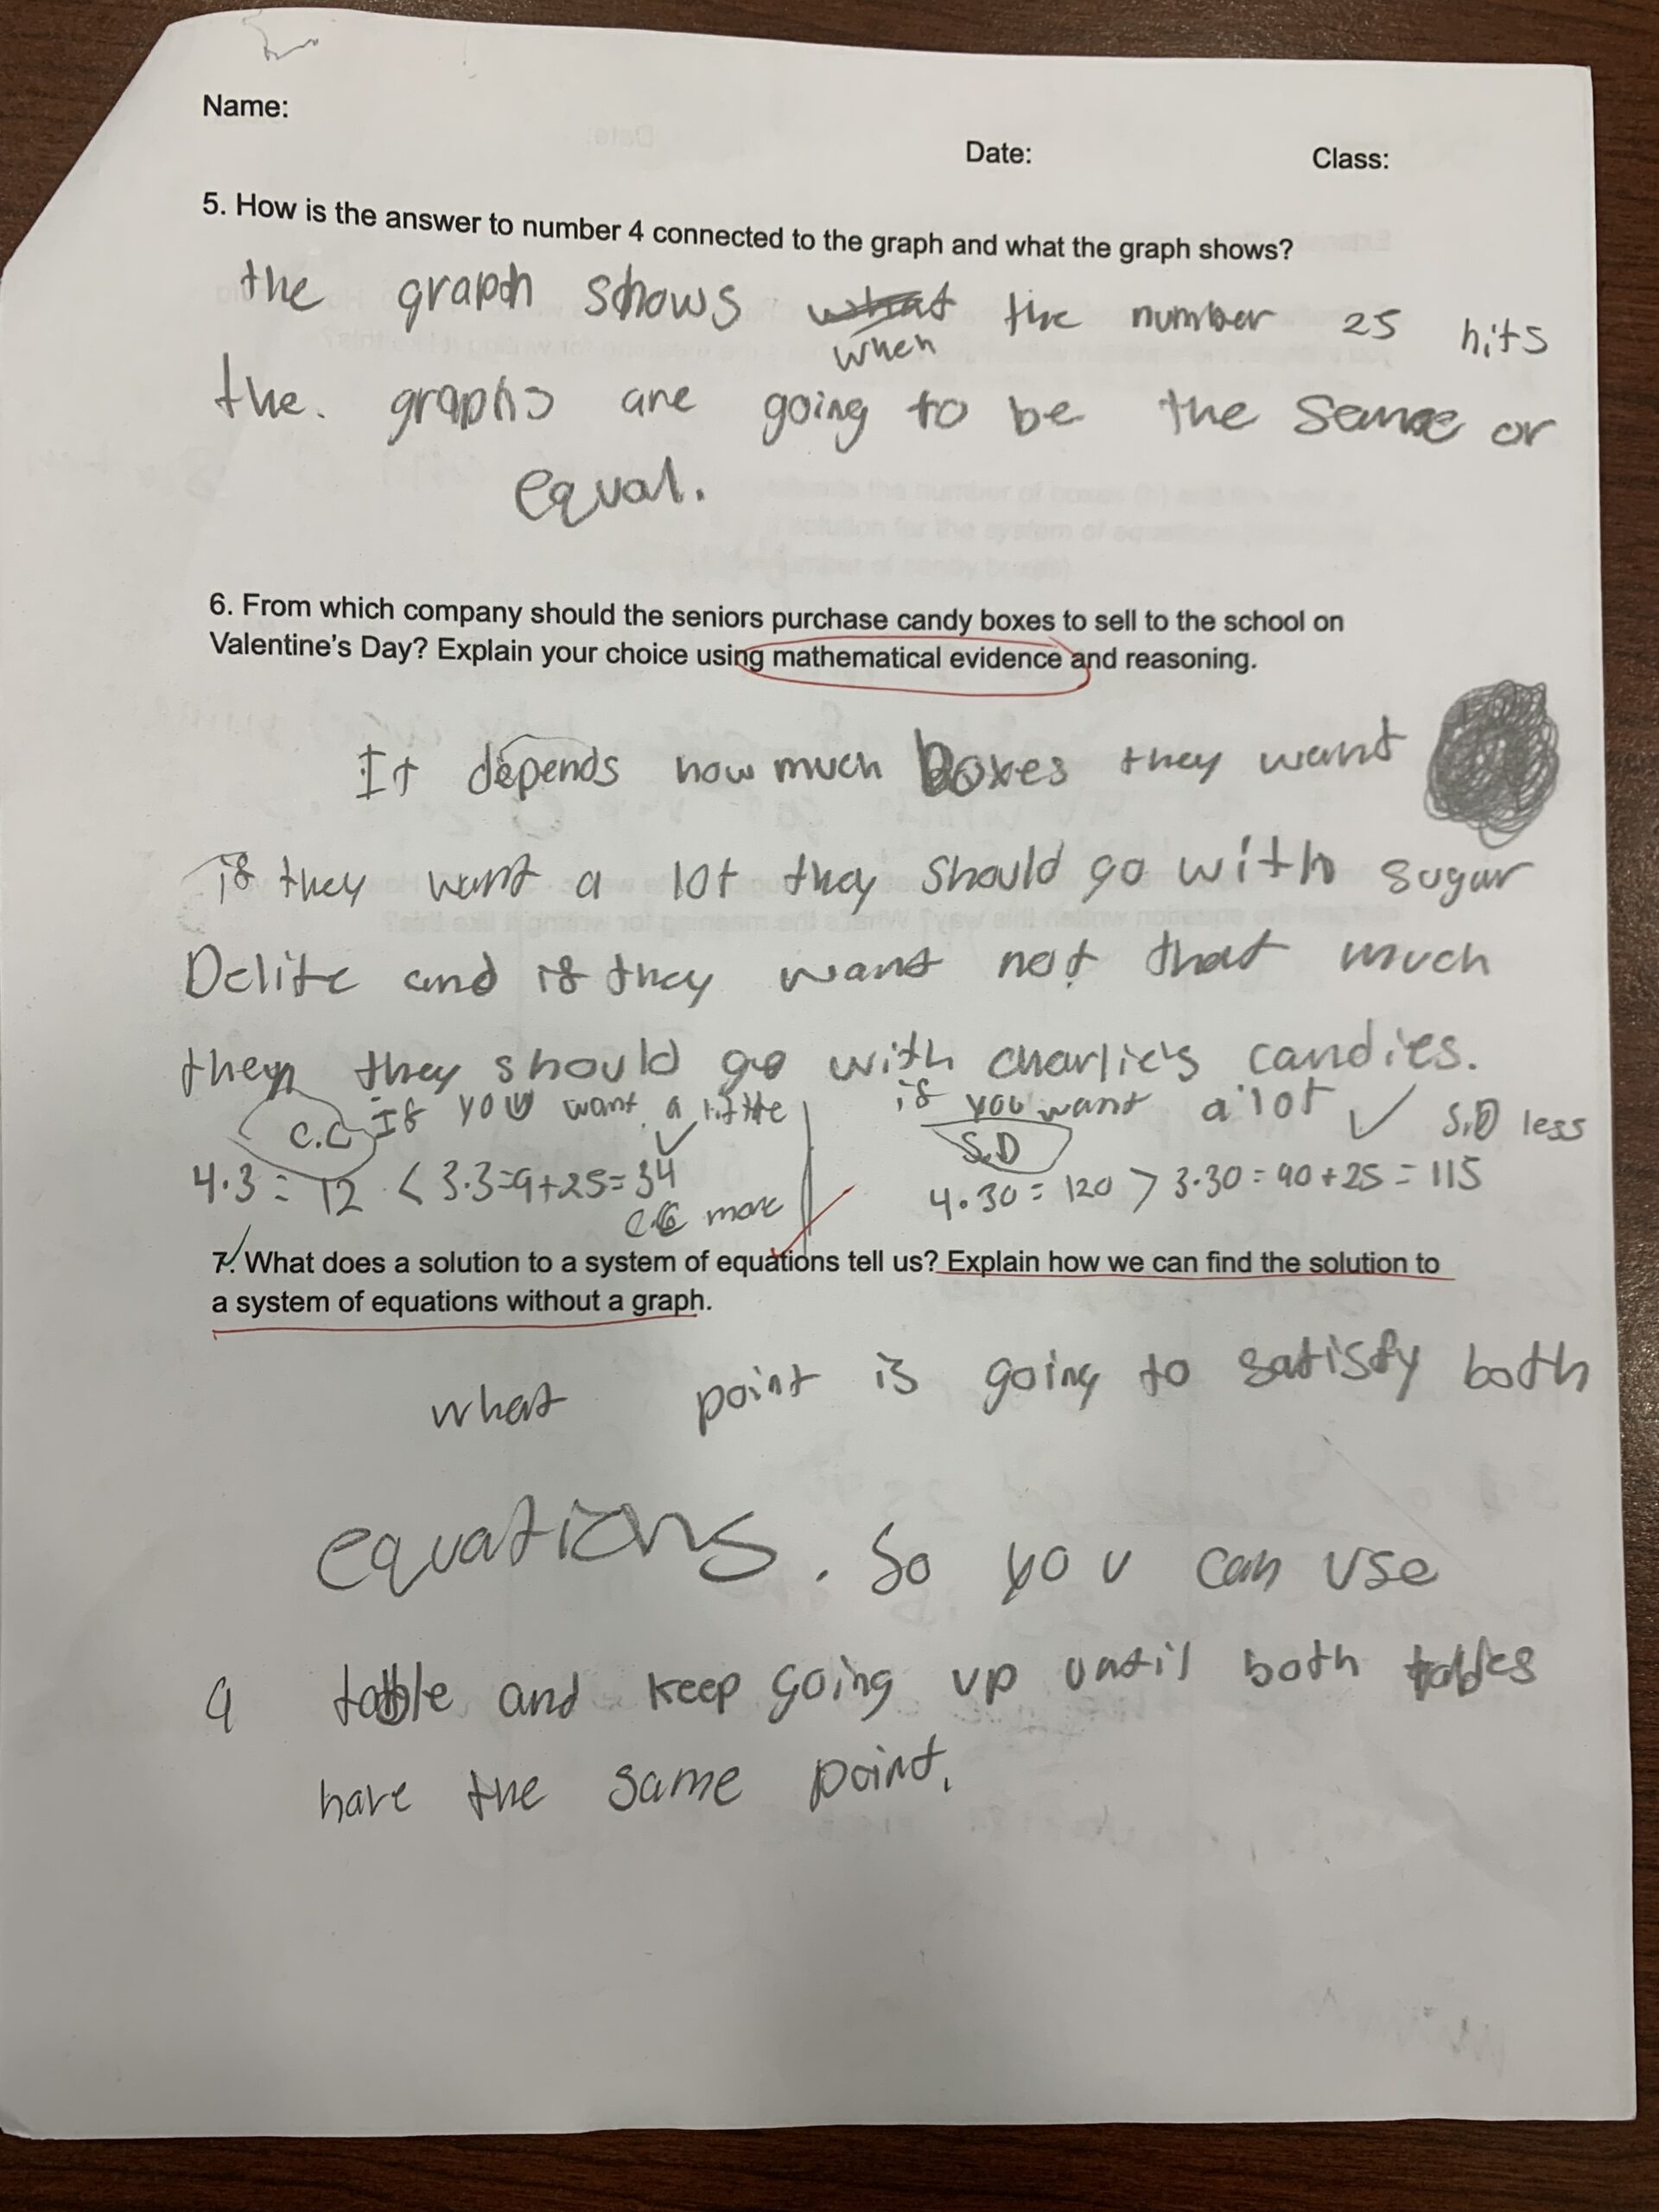 Name:
Date: Class:
5. How is the answer to number 4 connected to the graph and what the graph shows?
the graph shows what the number 25 hits
when
the. graphs are going to be the same or
equal.
6. From which company should the seniors purchase candy boxes to sell to the school on
Valentine's Day? Explain your choice using mathematical evidence and reasoning.
It depends how much Boxes they want
if they want a lot they should go with sugar
Delite and if they want not that much
then they should go with charlie's candies.
C.C If you want a little if you want a lot ✓ S.D less
S.D
4·3 = 12 < 3·3=9+25=34 ✓ 4·30 = 120 > 3·30 = 90 + 25 = 115
C.C more
7. What does a solution to a system of equations tell us? Explain how we can find the solution to
a system of equations without a graph.
what point is going to satisfy both
equations. So you can use
a table and keep going up until both tables
have the same point.